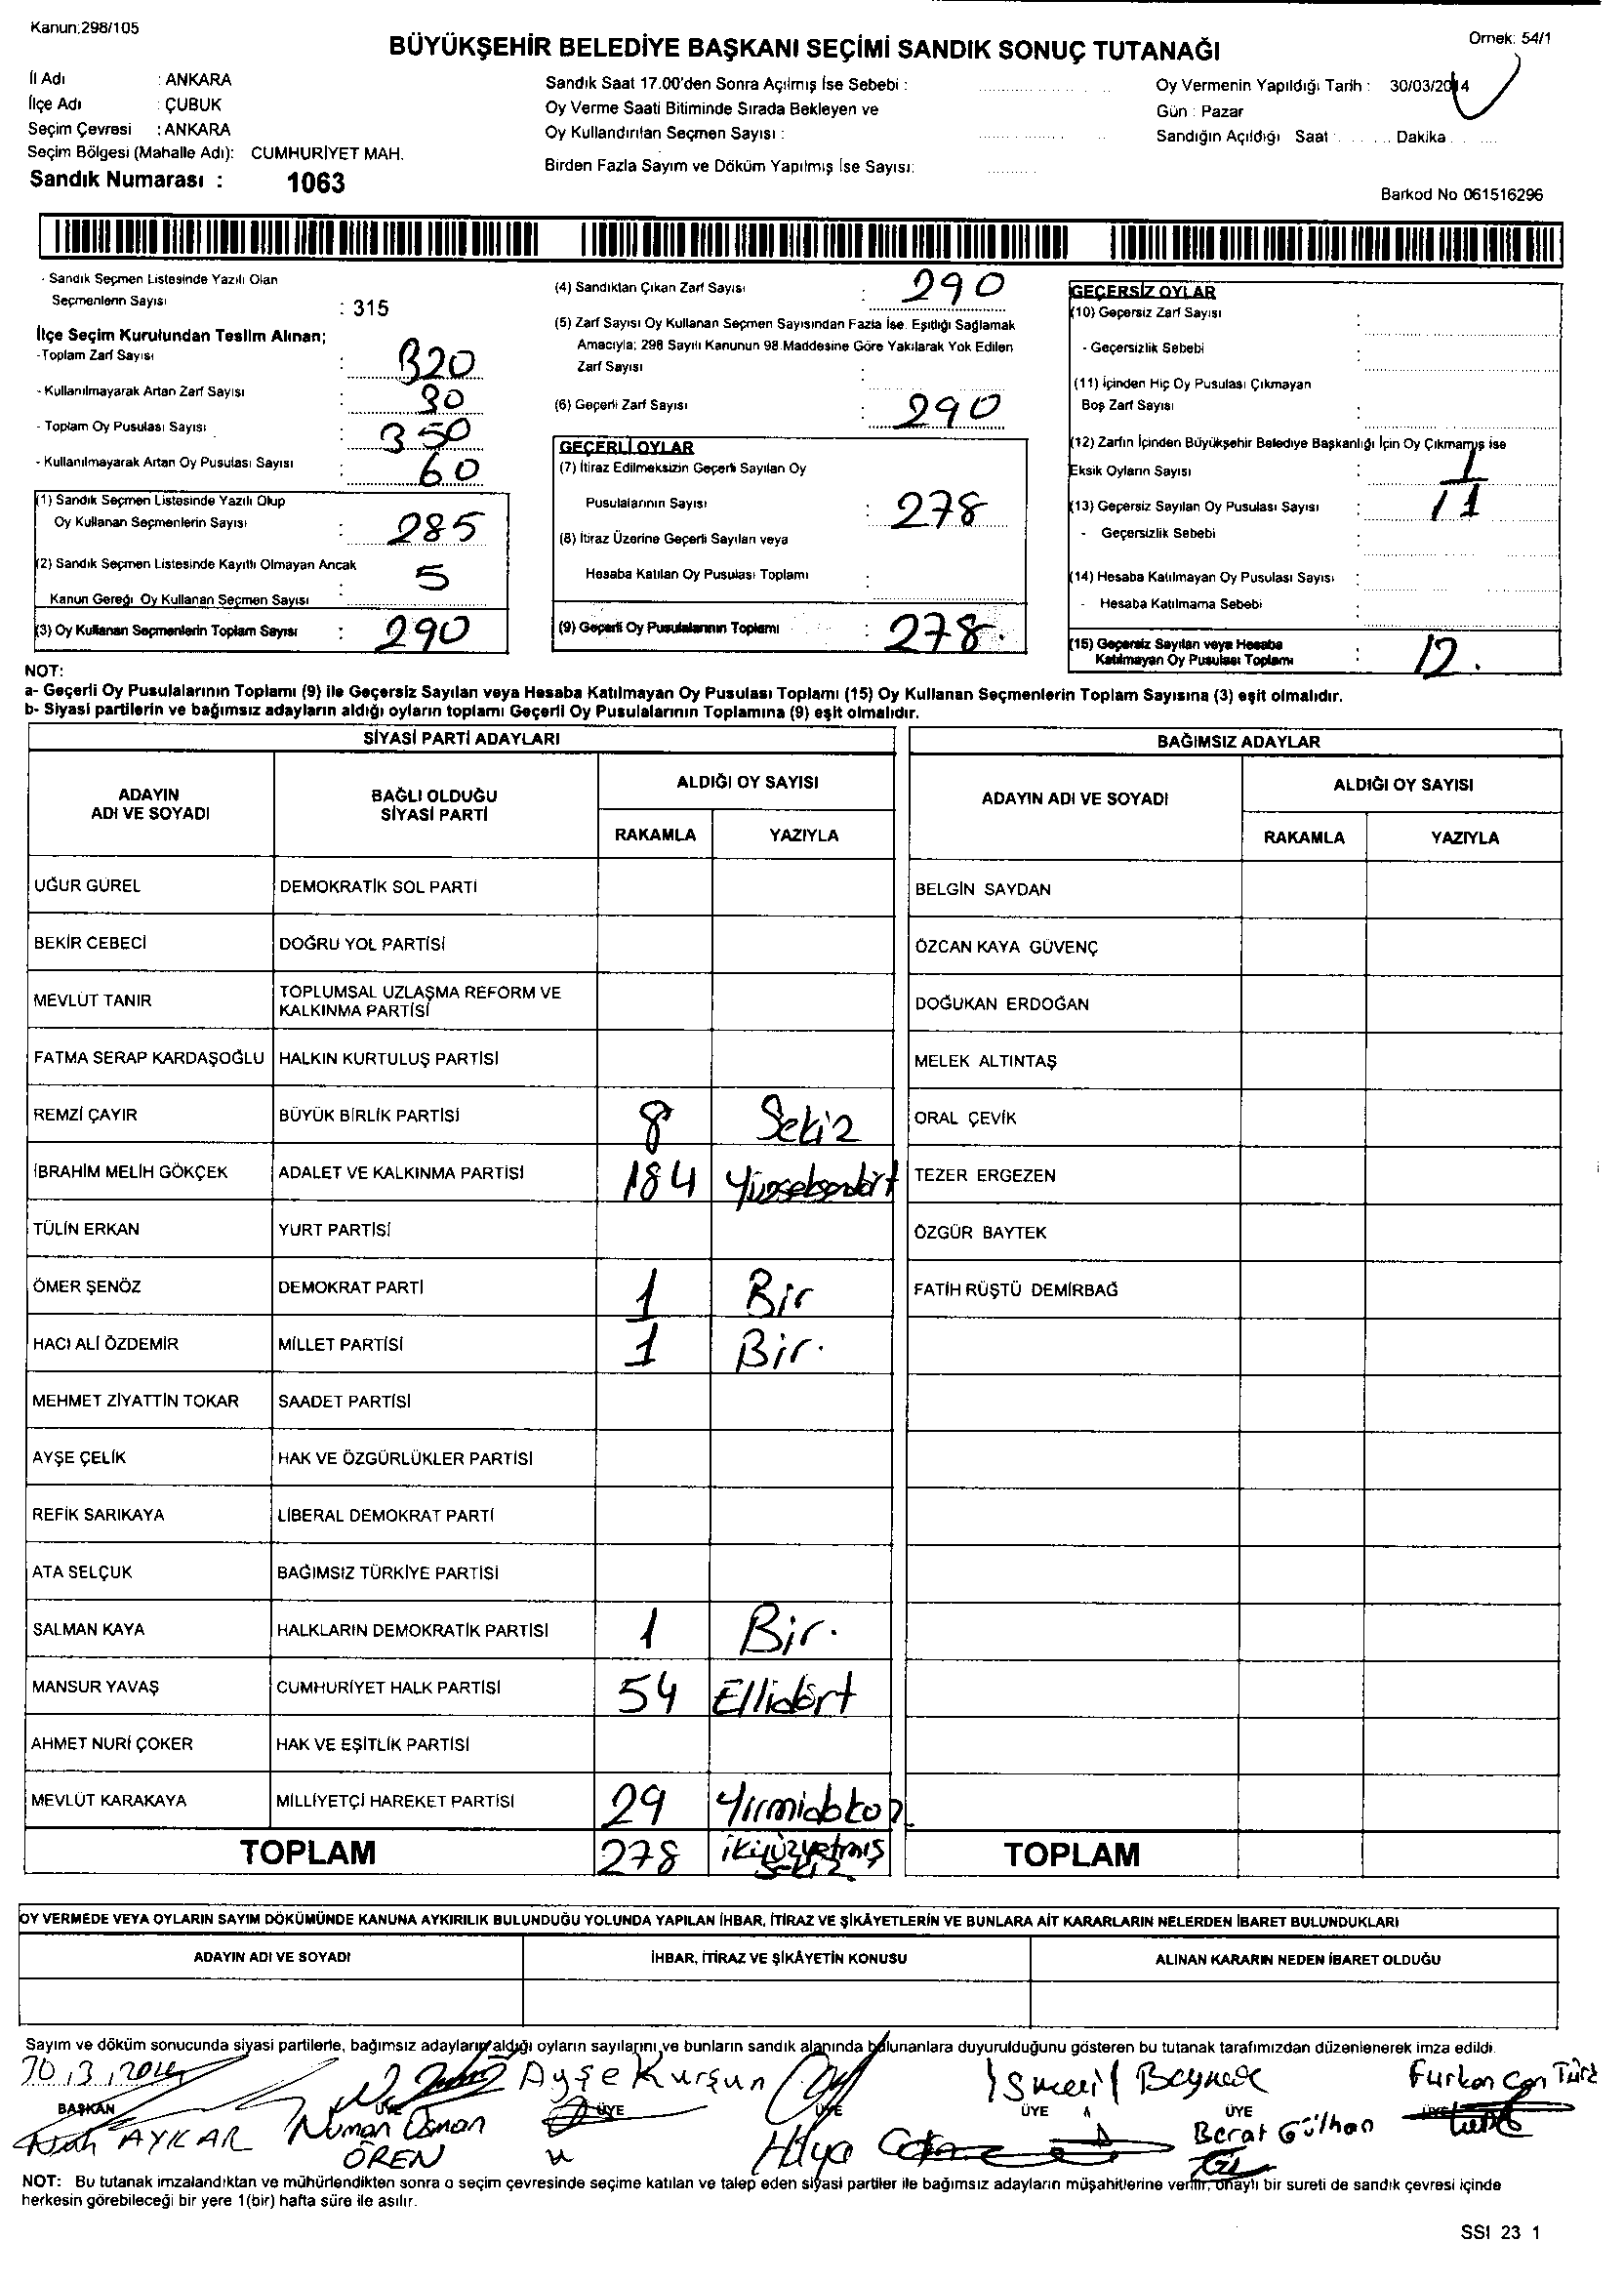 Kanun:298/105
Örnek: 54/1
BÜYÜKŞEHİR BELEDİYE BAŞKANI SEÇİMİ SANDIK SONUÇ TUTANAĞI
İl Adı : ANKARA
İlçe Adı : ÇUBUK
Seçim Çevresi : ANKARA
Seçim Bölgesi (Mahalle Adı): CUMHURİYET MAH.
Sandık Numarası : 1063
Sandık Saat 17.00'den Sonra Açılmış İse Sebebi :
Oy Verme Saati Bitiminde Sırada Bekleyen ve
Oy Kullandırılan Seçmen Sayısı :
Birden Fazla Sayım ve Döküm Yapılmış İse Sayısı:
Oy Vermenin Yapıldığı Tarih : 30/03/2014
Gün : Pazar
Sandığın Açıldığı Saat : Dakika
Barkod No 061516296
- Sandık Seçmen Listesinde Yazılı Olan
Seçmenlerin Sayısı : 315
İlçe Seçim Kurulundan Teslim Alınan;
-Toplam Zarf Sayısı : 320
- Kullanılmayarak Artan Zarf Sayısı : 30
- Toplam Oy Pusulası Sayısı : 350
- Kullanılmayarak Artan Oy Pusulası Sayısı : 60
(1) Sandık Seçmen Listesinde Yazılı Olup
Oy Kullanan Seçmenlerin Sayısı : 285
(2) Sandık Seçmen Listesinde Kayıtlı Olmayan Ancak
Kanun Gereği Oy Kullanan Seçmen Sayısı : 5
(3) Oy Kullanan Seçmenlerin Toplam Sayısı : 290
(4) Sandıktan Çıkan Zarf Sayısı : 290
(5) Zarf Sayısı Oy Kullanan Seçmen Sayısından Fazla İse, Eşitliği Sağlamak
Amacıyla; 298 Sayılı Kanunun 98.Maddesine Göre Yakılarak Yok Edilen
Zarf Sayısı :
(6) Geçerli Zarf Sayısı : 290
GEÇERLİ OYLAR
(7) İtiraz Edilmeksizin Geçerli Sayılan Oy
Pusulalarının Sayısı : 278
(8) İtiraz Üzerine Geçerli Sayılan veya
Hesaba Katılan Oy Pusulası Toplamı :
(9) Geçerli Oy Pusulalarının Toplamı : 278.
GEÇERSİZ OYLAR
(10) Geçersiz Zarf Sayısı :
- Geçersizlik Sebebi :
(11) İçinden Hiç Oy Pusulası Çıkmayan
Boş Zarf Sayısı :
(12) Zarfın İçinden Büyükşehir Belediye Başkanlığı İçin Oy Çıkmamış ise
Eksik Oyların Sayısı : 1
(13) Geçersiz Sayılan Oy Pusulası Sayısı : 11
- Geçersizlik Sebebi :
(14) Hesaba Katılmayan Oy Pusulası Sayısı :
- Hesaba Katılmama Sebebi :
(15) Geçersiz Sayılan veya Hesaba
Katılmayan Oy Pusulası Toplamı : 12.
NOT:
a- Geçerli Oy Pusulalarının Toplamı (9) ile Geçersiz Sayılan veya Hesaba Katılmayan Oy Pusulası Toplamı (15) Oy Kullanan Seçmenlerin Toplam Sayısına (3) eşit olmalıdır.
b- Siyasi partilerin ve bağımsız adayların aldığı oyların toplamı Geçerli Oy Pusulalarının Toplamına (9) eşit olmalıdır.
SİYASİ PARTİ ADAYLARI
ADAYIN ADI VE SOYADI
BAĞLI OLDUĞU SİYASİ PARTİ
ALDIĞI OY SAYISI
RAKAMLA YAZIYLA
UĞUR GÜREL DEMOKRATİK SOL PARTİ
BEKİR CEBECİ DOĞRU YOL PARTİSİ
MEVLÜT TANIR TOPLUMSAL UZLAŞMA REFORM VE KALKINMA PARTİSİ
FATMA SERAP KARDAŞOĞLU HALKIN KURTULUŞ PARTİSİ
REMZİ ÇAYIR BÜYÜK BİRLİK PARTİSİ 8 Sekiz
İBRAHİM MELİH GÖKÇEK ADALET VE KALKINMA PARTİSİ 184 Yüzseksendört
TÜLİN ERKAN YURT PARTİSİ
ÖMER ŞENÖZ DEMOKRAT PARTİ 1 Bir
HACI ALİ ÖZDEMİR MİLLET PARTİSİ 1 Bir.
MEHMET ZİYATTİN TOKAR SAADET PARTİSİ
AYŞE ÇELİK HAK VE ÖZGÜRLÜKLER PARTİSİ
REFİK SARIKAYA LİBERAL DEMOKRAT PARTİ
ATA SELÇUK BAĞIMSIZ TÜRKİYE PARTİSİ
SALMAN KAYA HALKLARIN DEMOKRATİK PARTİSİ 1 Bir.
MANSUR YAVAŞ CUMHURİYET HALK PARTİSİ 54 Ellidört
AHMET NURİ ÇOKER HAK VE EŞİTLİK PARTİSİ
MEVLÜT KARAKAYA MİLLİYETÇİ HAREKET PARTİSİ 29 Yirmidokuz
TOPLAM 278 ikiyüzyetmiş
sekiz.
BAĞIMSIZ ADAYLAR
ADAYIN ADI VE SOYADI
ALDIĞI OY SAYISI
RAKAMLA YAZIYLA
BELGİN SAYDAN
ÖZCAN KAYA GÜVENÇ
DOĞUKAN ERDOĞAN
MELEK ALTINTAŞ
ORAL ÇEVİK
TEZER ERGEZEN
ÖZGÜR BAYTEK
FATİH RÜŞTÜ DEMİRBAĞ
TOPLAM
OY VERMEDE VEYA OYLARIN SAYIM DÖKÜMÜNDE KANUNA AYKIRILIK BULUNDUĞU YOLUNDA YAPILAN İHBAR, İTİRAZ VE ŞİKÂYETLERİN VE BUNLARA AİT KARARLARIN NELERDEN İBARET BULUNDUKLARI
ADAYIN ADI VE SOYADI
İHBAR, İTİRAZ VE ŞİKÂYETİN KONUSU
ALINAN KARARIN NEDEN İBARET OLDUĞU
Sayım ve döküm sonucunda siyasi partilerle, bağımsız adayların aldığı oyların sayılarını ve bunların sandık alanında bulunanlara duyurulduğunu gösteren bu tutanak tarafımızdan düzenlenerek imza edildi.
30.3.2014
Ayşe Kurşun
İsmail
Furkan Can Türk
BAŞKAN ÜYE ÜYE ÜYE ÜYE ÜYE ÜYE
AYKAR
Numan Osman
ÖREN
Hülya
Berat Gülhan
NOT: Bu tutanak imzalandıktan ve mühürlendikten sonra o seçim çevresinde seçime katılan ve talep eden siyasi partiler ile bağımsız adayların müşahitlerine verilir, onaylı bir sureti de sandık çevresi içinde
herkesin görebileceği bir yere 1(bir) hafta süre ile asılır.
SSI 23 1